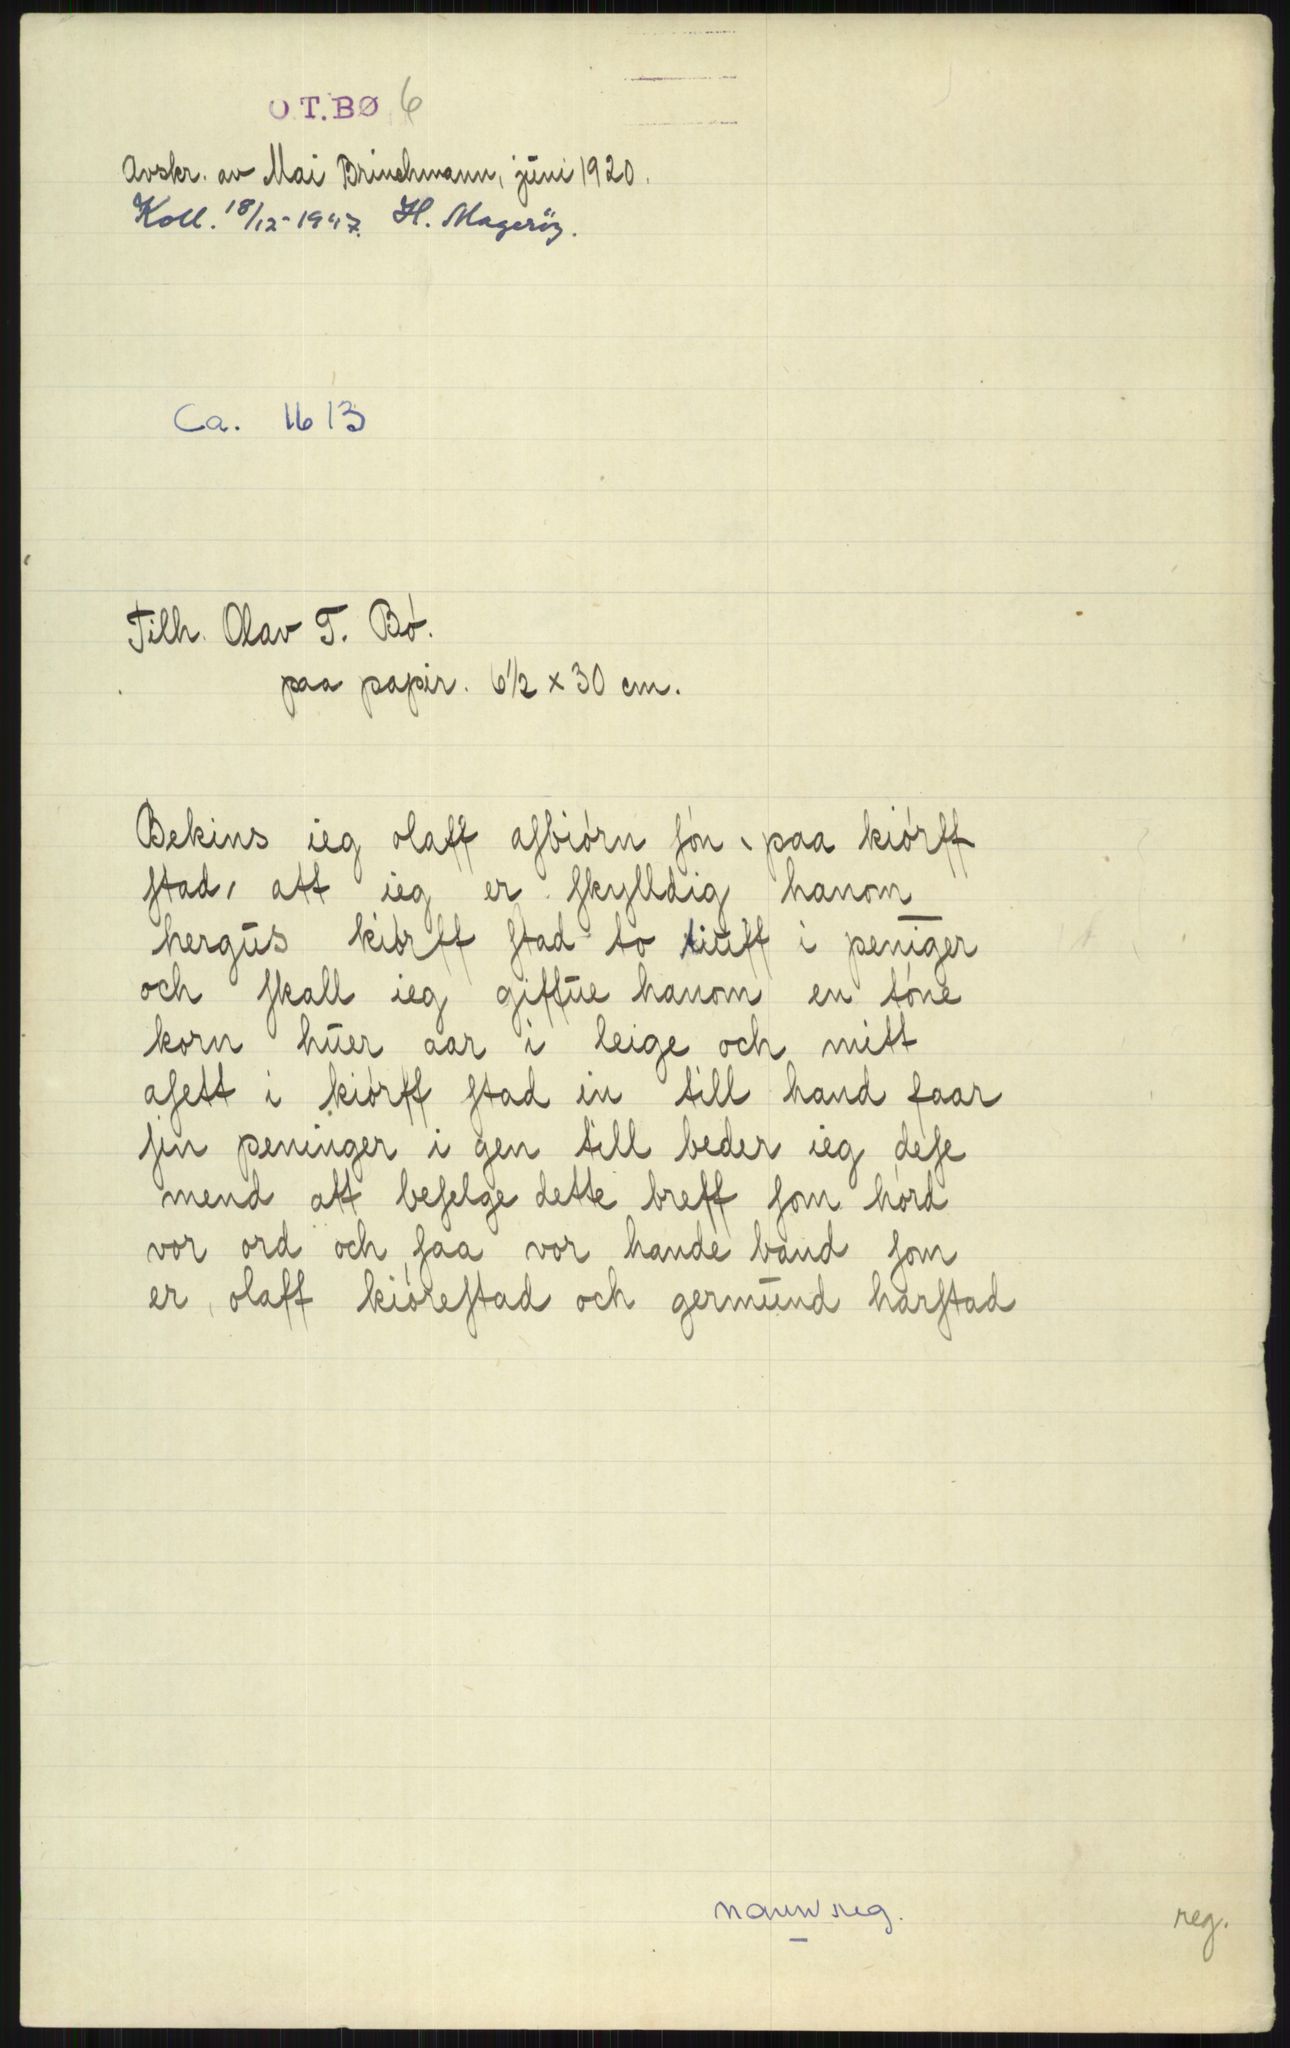 O T. BØ 6
Avskr. av Mai Brinchmann, juni 1920.
Koll. 18/12-1947. H. Magerøy.
Ca. 1613
Tilh. Olav T. Bø.
paa papir. 6½ x 30 cm.
Bekins ieg olaff aſbiórn ſón, paa kiórff
ſtad, att ieg er ſkylldig hanom
hergŭs kiórff ſtad to tiŭff i peniger
och ſkall ieg giffŭe hanom en tóne
korn hŭer aar i leige och mitt
aſett i kiórff ſtad in till hand faar
ſin peninger i gen till beder ieg deſe
mend att beſelge dette breff ſom hórd
vor ord och ſaa vor hande band ſom
er, olaff kióreſtad och germŭnd harſtad
navnreg.
reg.